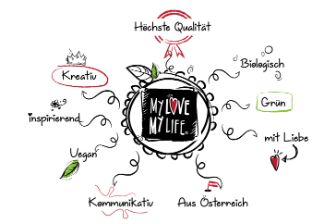 Höchste Qualität
Kreativ
Biologisch
Grün
inspirierend
MY LOVE
MY LIFE.
mit Liebe
Vegan
Kommunikativ
Aus Österreich